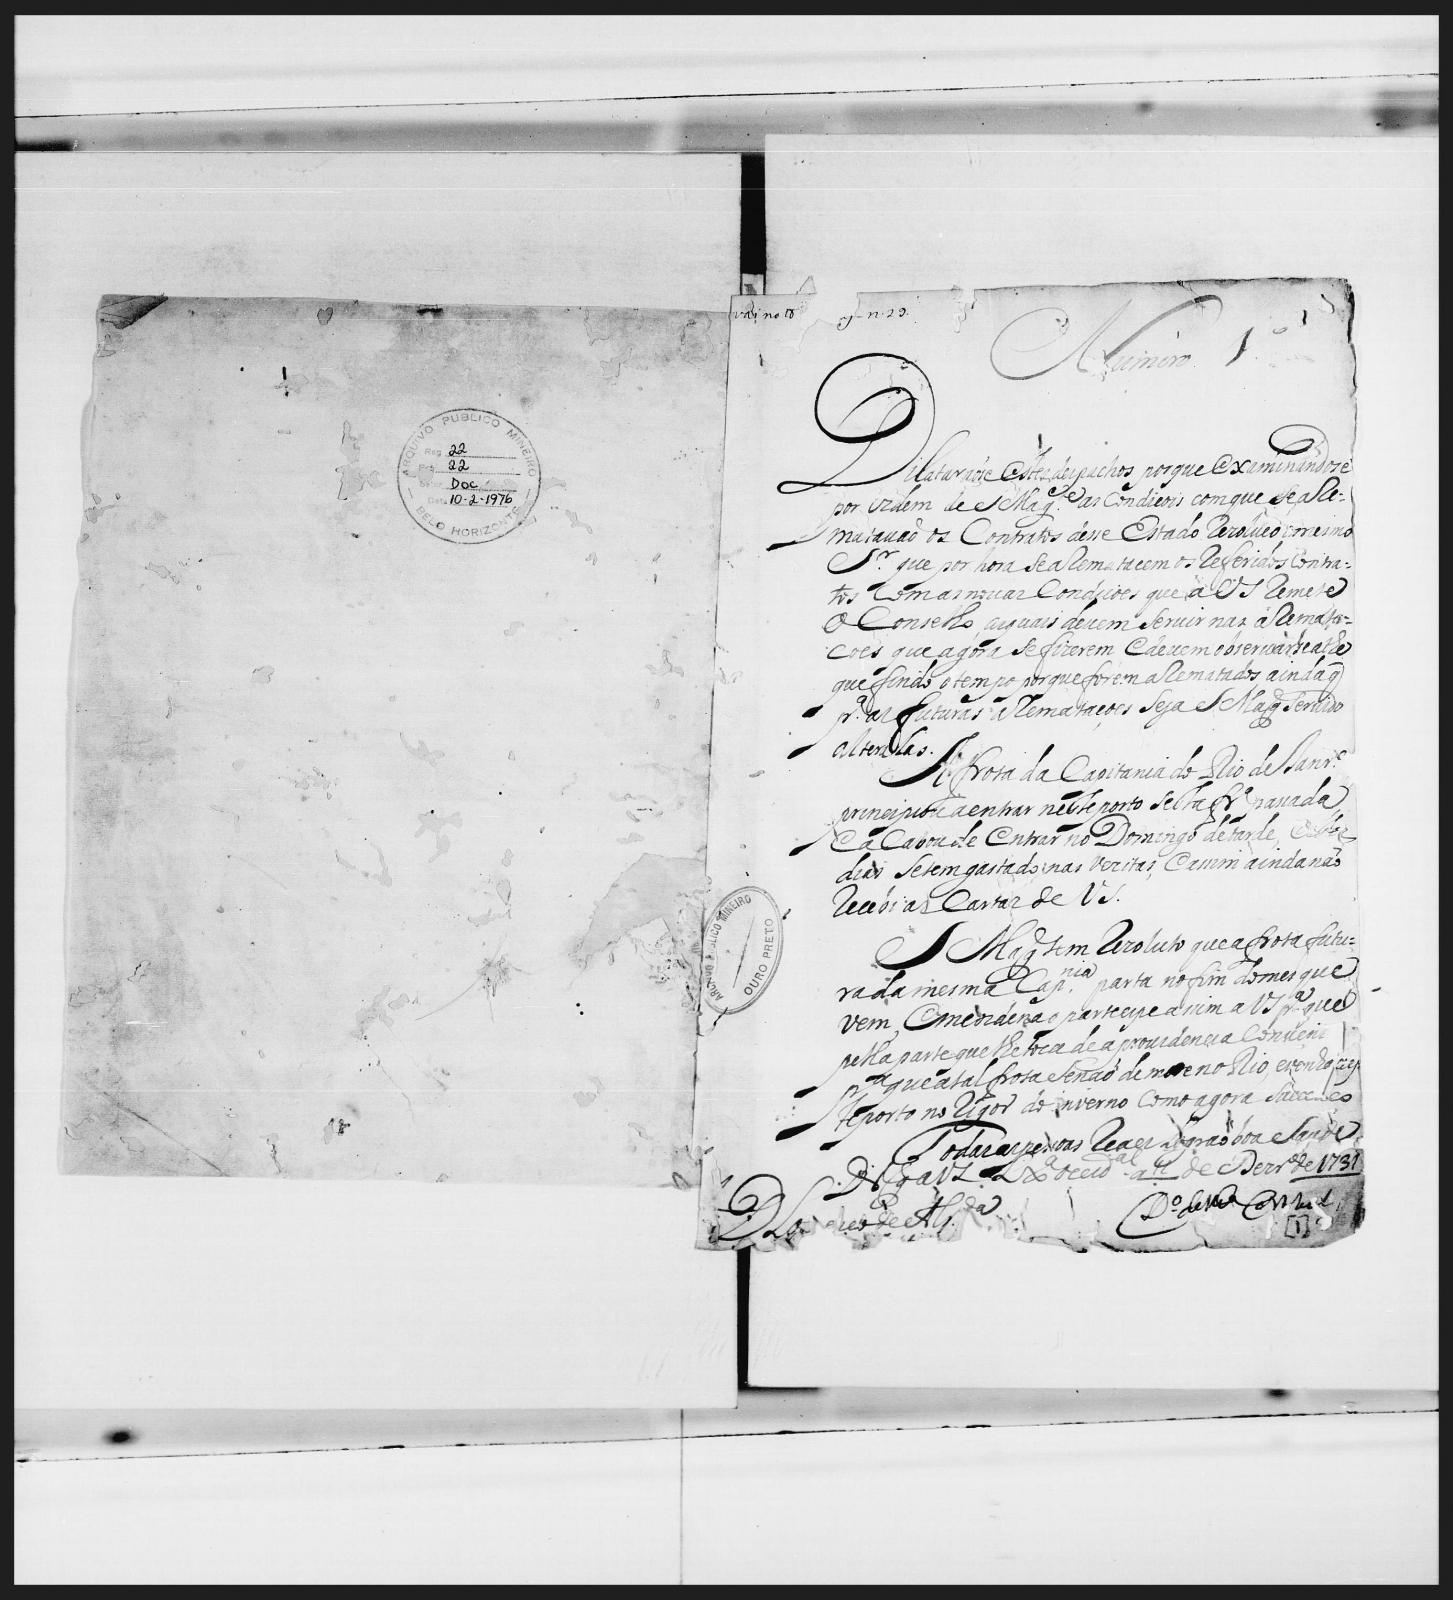 ARQUIVO PUBLICO MINEIRO
Reg 22
22
DOC
Data 10-2-1976
BELO HORIZONTE
n. 29.
Numero 1º
1
Dilataraõse estes despachos porque examinandose
por ordem de S Magᵉ as Condicois com que se aRe=
matauaõ os Contratos desse Estado Rezolueo o mesmo
Sʳ que por hora se aRematacem os Referidos Contra=
tos com as nouas Condicoes que a VS Remete
o Conselho, as quais deuem seruir nas aRemata=
coes que agora se fizerem e deuem obseruarse athe
que findo o tempo porque forem aRematados ainda q
pª as futuras aRematacoes seja S Magᵉ seruido
alteralas.
A frota da Capitania do Rio de Janrº
principiou a entrar neste porto sesta frª passada
e acabou de entrar no Domingo de tarde, e estes
dias se tem gastado nas vezitas, e assim ainda naõ
Recebi as Cartas de VS.
S Magᵉ tem Rezoluto que a frota futu=
ra da mesma Capⁿⁱᵃ parta no fim do mes que
vem, e me ordena o partecipe assim a VS pª que
pella parte que lhe toca dé a prouidencia
pª que a tal frota se naõ demore no Rio,
te porto no Rigor do inverno como agora
Todas as pessoas Reaes lograõ boa Saude.
Ds gᵈᵉ a VS. Lxª occidᵃˡ a 11 de de 1731
Dº de Mᶜᵃ Corte Real
D. Lourenço de Almᵈᵃ
[1]
ARQUIVO PUBLICO MINEIRO
OURO PRETO